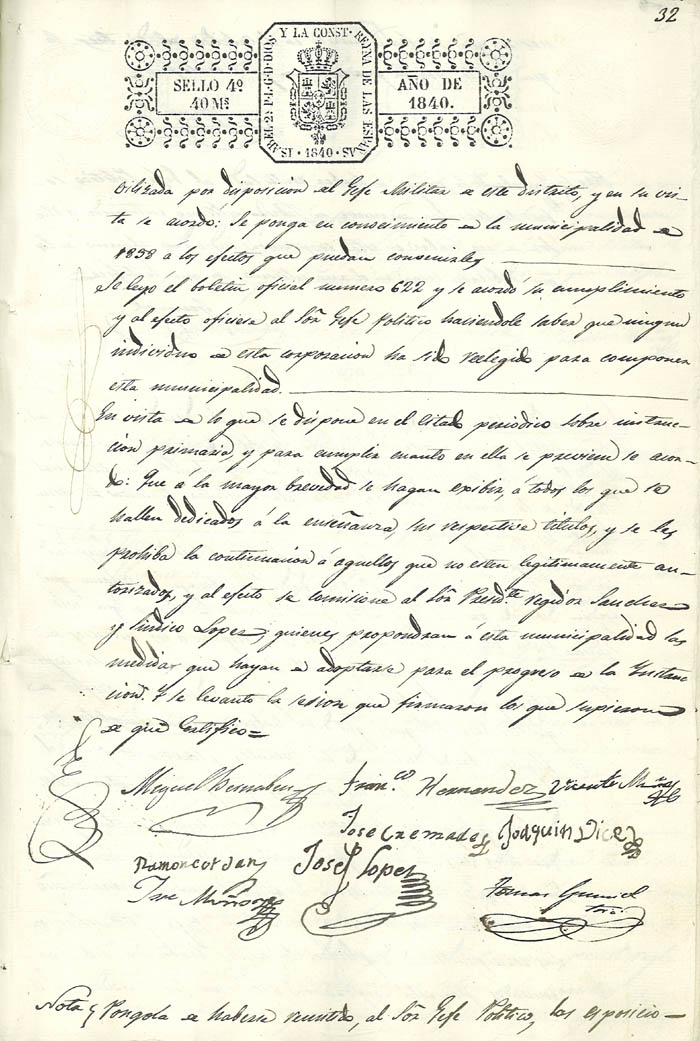 32
SELLO 4º
40 Mˢ
ISABEL 2ª P.L.G.D.DIOS Y LA CONST. REYNA DE LAS ESPAÑAS
· 1840 ·
AÑO DE
1840.
vilizada por disposicion del Gefe Militar de este distrito, y en su vis-
ta se acordó: Se ponga en conocimiento de la municipalidad de
1838 á los efectos que puedan convenirles.
Se leyó el boletin oficial numero 622 y se acordó su cumplimiento
y al efecto oficiese al Sôr Gefe Politico haciendole saber que ningun
individuo de esta corporacion ha sido reelegido para componer
esta municipalidad.
En vista de lo que se dispone en el citado periodico sobre instruc-
cion primaria, y para cumplir cuanto en ella se previene se acor-
dó: Que á la mayor brevedad se hagan exibir, á todos los que se
hallen dedicados á la enseñanza, sus respective titulos, y se les
prohiba la continuacion á aquellos que no esten legitimamente au-
torizados, y al efecto se comisione al Sôr Presid.te regidor Sanchez
y Sindico Lopez, quienes propondran á esta municipalidad las
medidas que hayan de adoptarse para el progreso de la Instruc
cion. Y se levanto la sesion que firmaron los que supieron
de que Certifico=
Miguel Bernabeu Fran.co Hernandez Vicente Muñoz
Jose Cremades Joaquin Vicedo
Ramon Cordan Josef Lopez
Jose Muñoz Tomas
Nota Pongola de haberse remitido, al Sôr Gefe Politico, las esposicio-